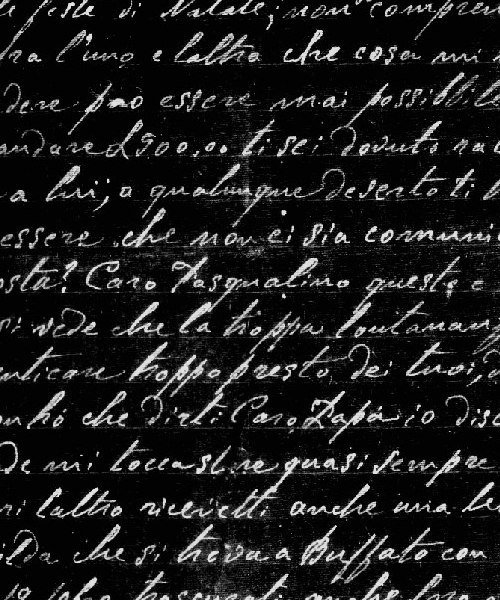 feste di Natale; non compren
ra l'uno e laltra che cosa mi
dere può essere mai possibbile
andare £500,00 ti sei dovuto
a lui; o qualunque deserto ti
essere che non ci sia comuni
osta? Caro Pasqualino queste e
si vede che la troppa lontanan
enticare troppo presto dei tuoi,
che dirti Caro Papà io
De mi tocca stare quasi sempre
ri laltro ricevetti anche una le
ilda che si trova a Buffalo con
trascurati anche loro